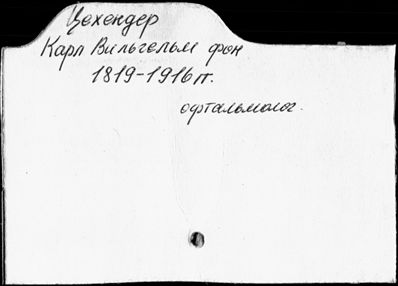 Цехендер
Карл Вильгельм фон
1819-1916 гг.
офтальмолог.